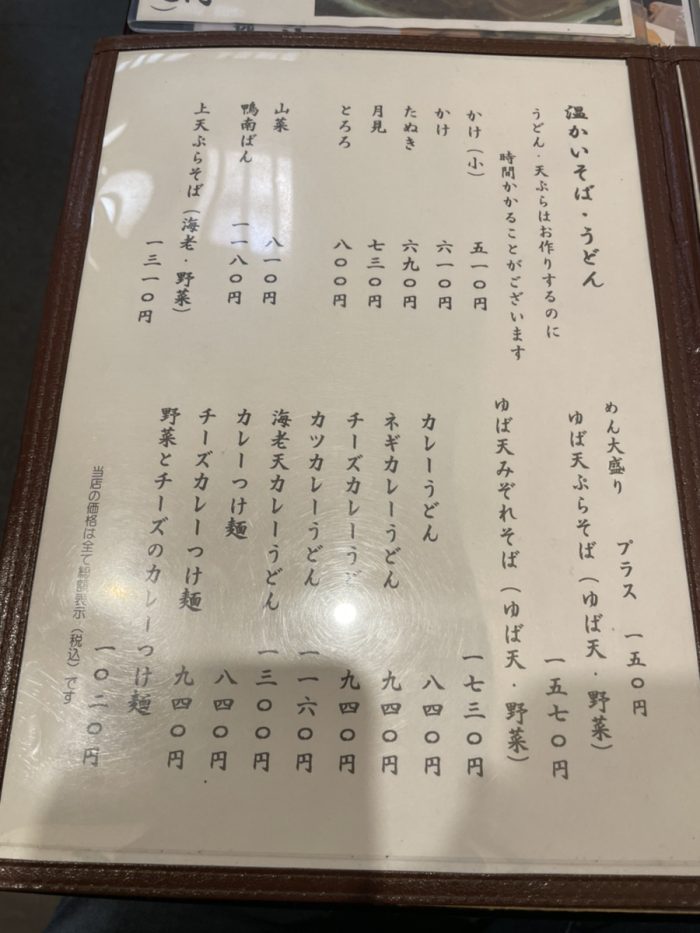 温かいそば・うどん
うどん・天ぷらはお作りするのに
時間かかることがございます
かけ（小） 五一〇円
かけ 六一〇円
たぬき 六九〇円
月見 七三〇円
とろろ 八〇〇円
山菜 八一〇円
鴨南ばん 一一八〇円
上天ぷらそば（海老・野菜）
一三一〇円
めん大盛り プラス 一五〇円
ゆば天ぷらそば（ゆば天・野菜）
一五七〇円
ゆば天みぞれそば（ゆば天・野菜）
一七三〇円
カレーうどん 八四〇円
ネギカレーうどん 九四〇円
チーズカレーうどん 九四〇円
カツカレーうどん 一一六〇円
海老天カレーうどん 一三〇〇円
カレーつけ麺 八四〇円
チーズカレーつけ麺 九四〇円
野菜とチーズのカレーつけ麺
一〇二〇円
当店の価格は全て総額表示（税込）です